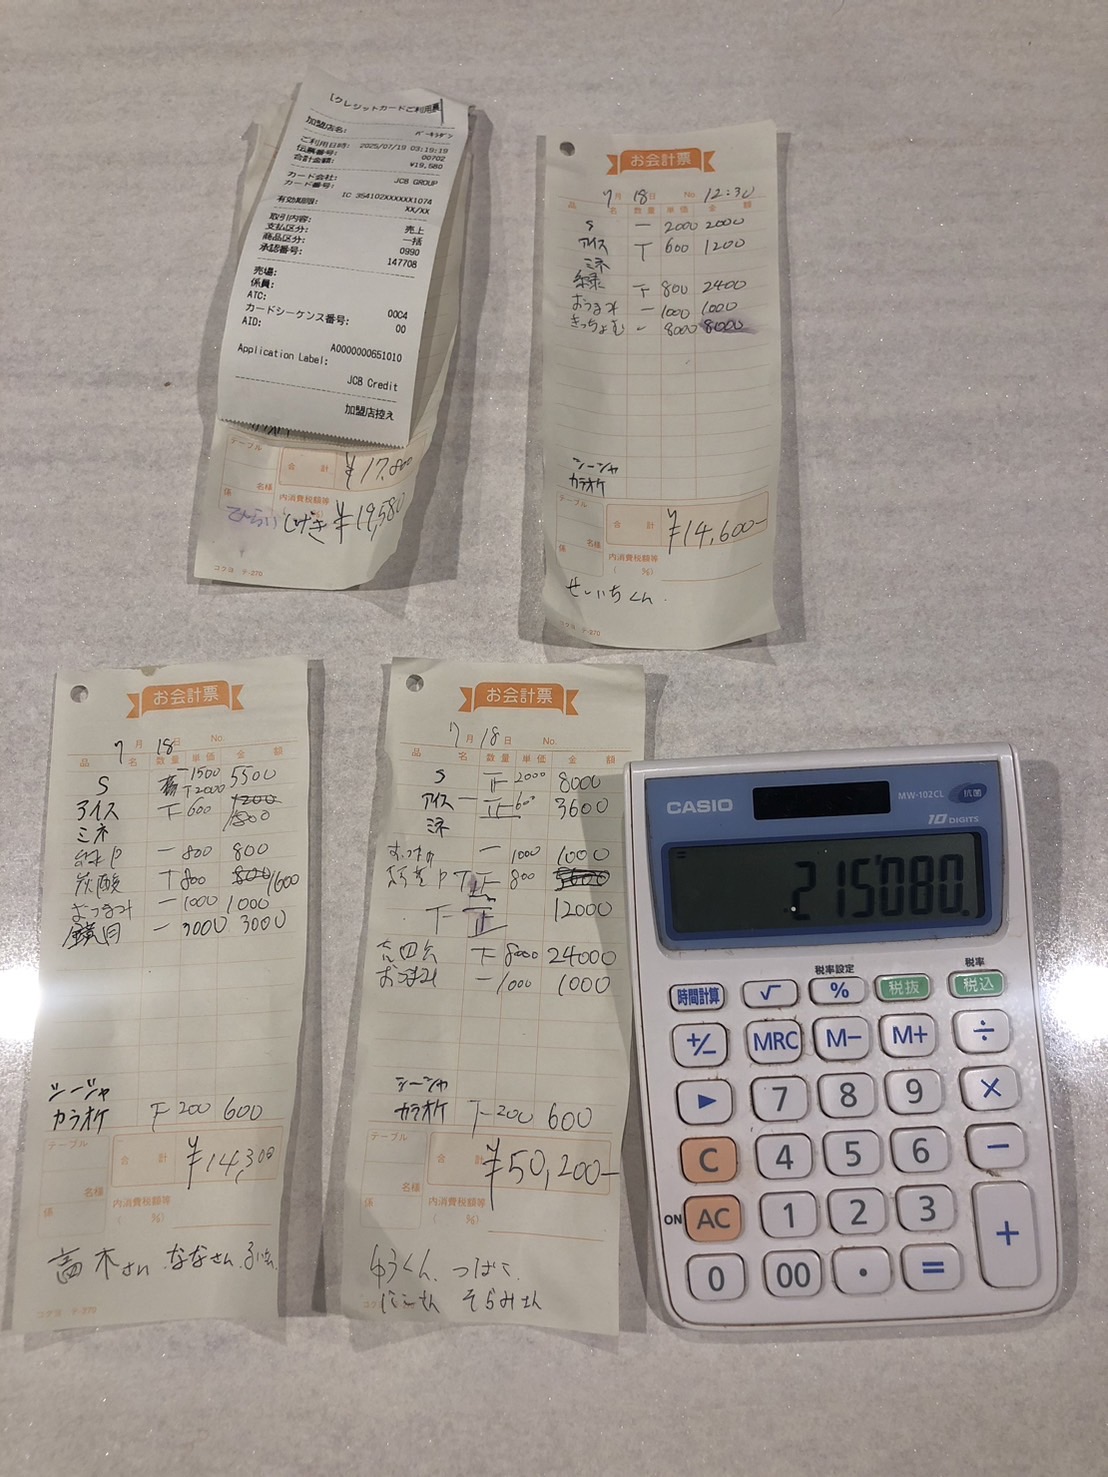 【クレジットカードご利用票】
加盟店名:
バーキラボシ
ご利用日時: 2025/07/19 03:19:19
伝票番号: 00702
合計金額: ¥19,580
カード会社: JCB GROUP
カード番号: IC 354102XXXXXX1074
有効期限: XX/XX
取引内容: 売上
支払区分: 一括
商品区分: 0990
承認番号: 147708
売場:
係員:
ATC: 00C4
カードシーケンス番号: 00
AID: A0000000651010
Application Label: JCB Credit
加盟店控え
テーブル
合 計 ¥17,800
名様
係
内消費税額等
しげき ¥19,580
コクヨ テ-270
お会計票
7月 18日 No. 12:30
品 名 数量 単価 金 額
S 一 2000 2000
アイス T 600 1200
ミネ
緑 下 800 2400
おつまみ 一 1000 1000
きっちょむ 一 8000 8000
シーシャ
カラオケ
テーブル
合 計 ¥14,600-
名様
係
内消費税額等
( %)
せいいちくん.
コクヨ テ-270
お会計票
7月 18日 No.
品 名 数量 単価 金 額
S 一1500 5500
T2000
アイス 下 600 1200 1800
ミネ
緑P 一 800 800
炭酸 T 800 800 1600
おつまみ 一 1000 1000
鏡月 一 3000 3000
シーシャ
カラオケ 下 200 600
テーブル
合 計 ¥14,300
名様
係
内消費税額等
( %)
木さん. ななさん.
コクヨ テ-270
お会計票
7月 18日 No.
品 名 数量 単価 金 額
S 正 2000 8000
アイス 一 正 600 3600
ミネ
おつまみ 一 1000 1000
P T 正 800
下 正 12000
下 8000 24000
おつまみ 一 1000 1000
シーシャ
カラオケ 下 200 600
テーブル
合 計 ¥50,200-
名様
係
内消費税額等
( %)
ゆうくん. つばさ.
にこさん そらみさん
CASIO
MW-102CL 抗菌
10 DIGITS
215'080.
税率設定 税率
時間計算 √ % 税抜 税込
+/- MRC M- M+ ÷
▶ 7 8 9 ×
C 4 5 6 −
ON AC 1 2 3 +
0 00 • =